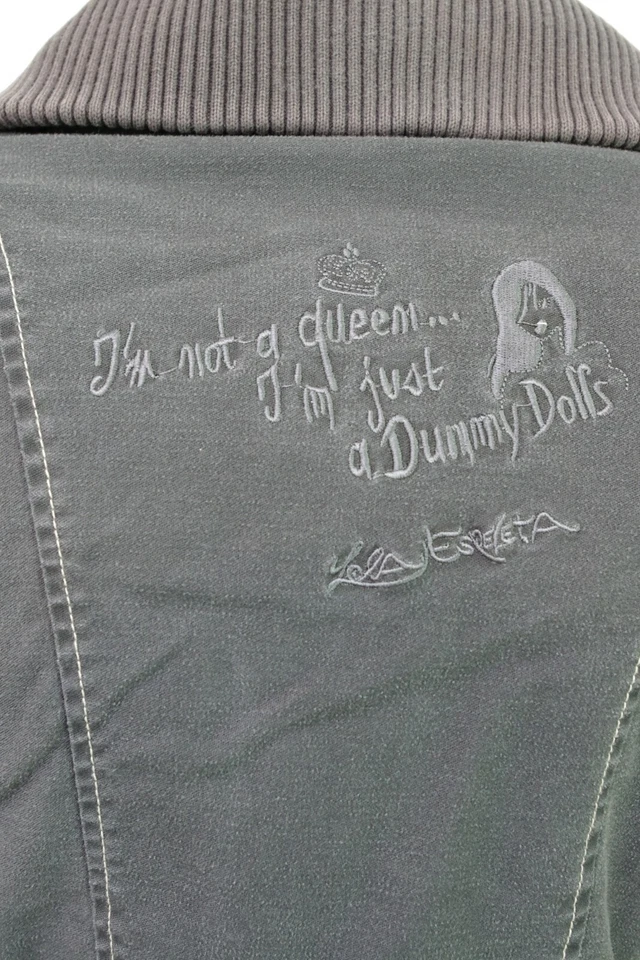 I'm not a queen...
I'm just
a Dummy Dolls
Yola Espeleta